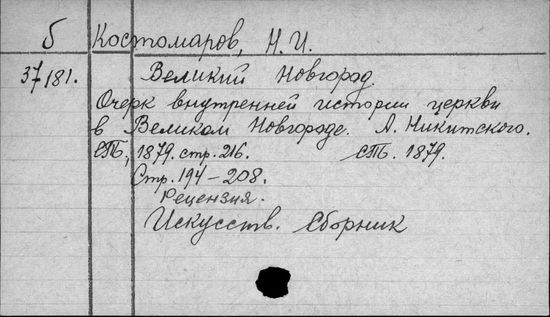 б Костомаров, Н.И.
37181. Великий Новгород
Очерк внутренней истории церкви
в Великом Новгороде. А. Никитского.
СПб, 1879. стр. 216. СПб. 1879.
Стр. 194-208.
Рецензия.
Искусств. Сборник